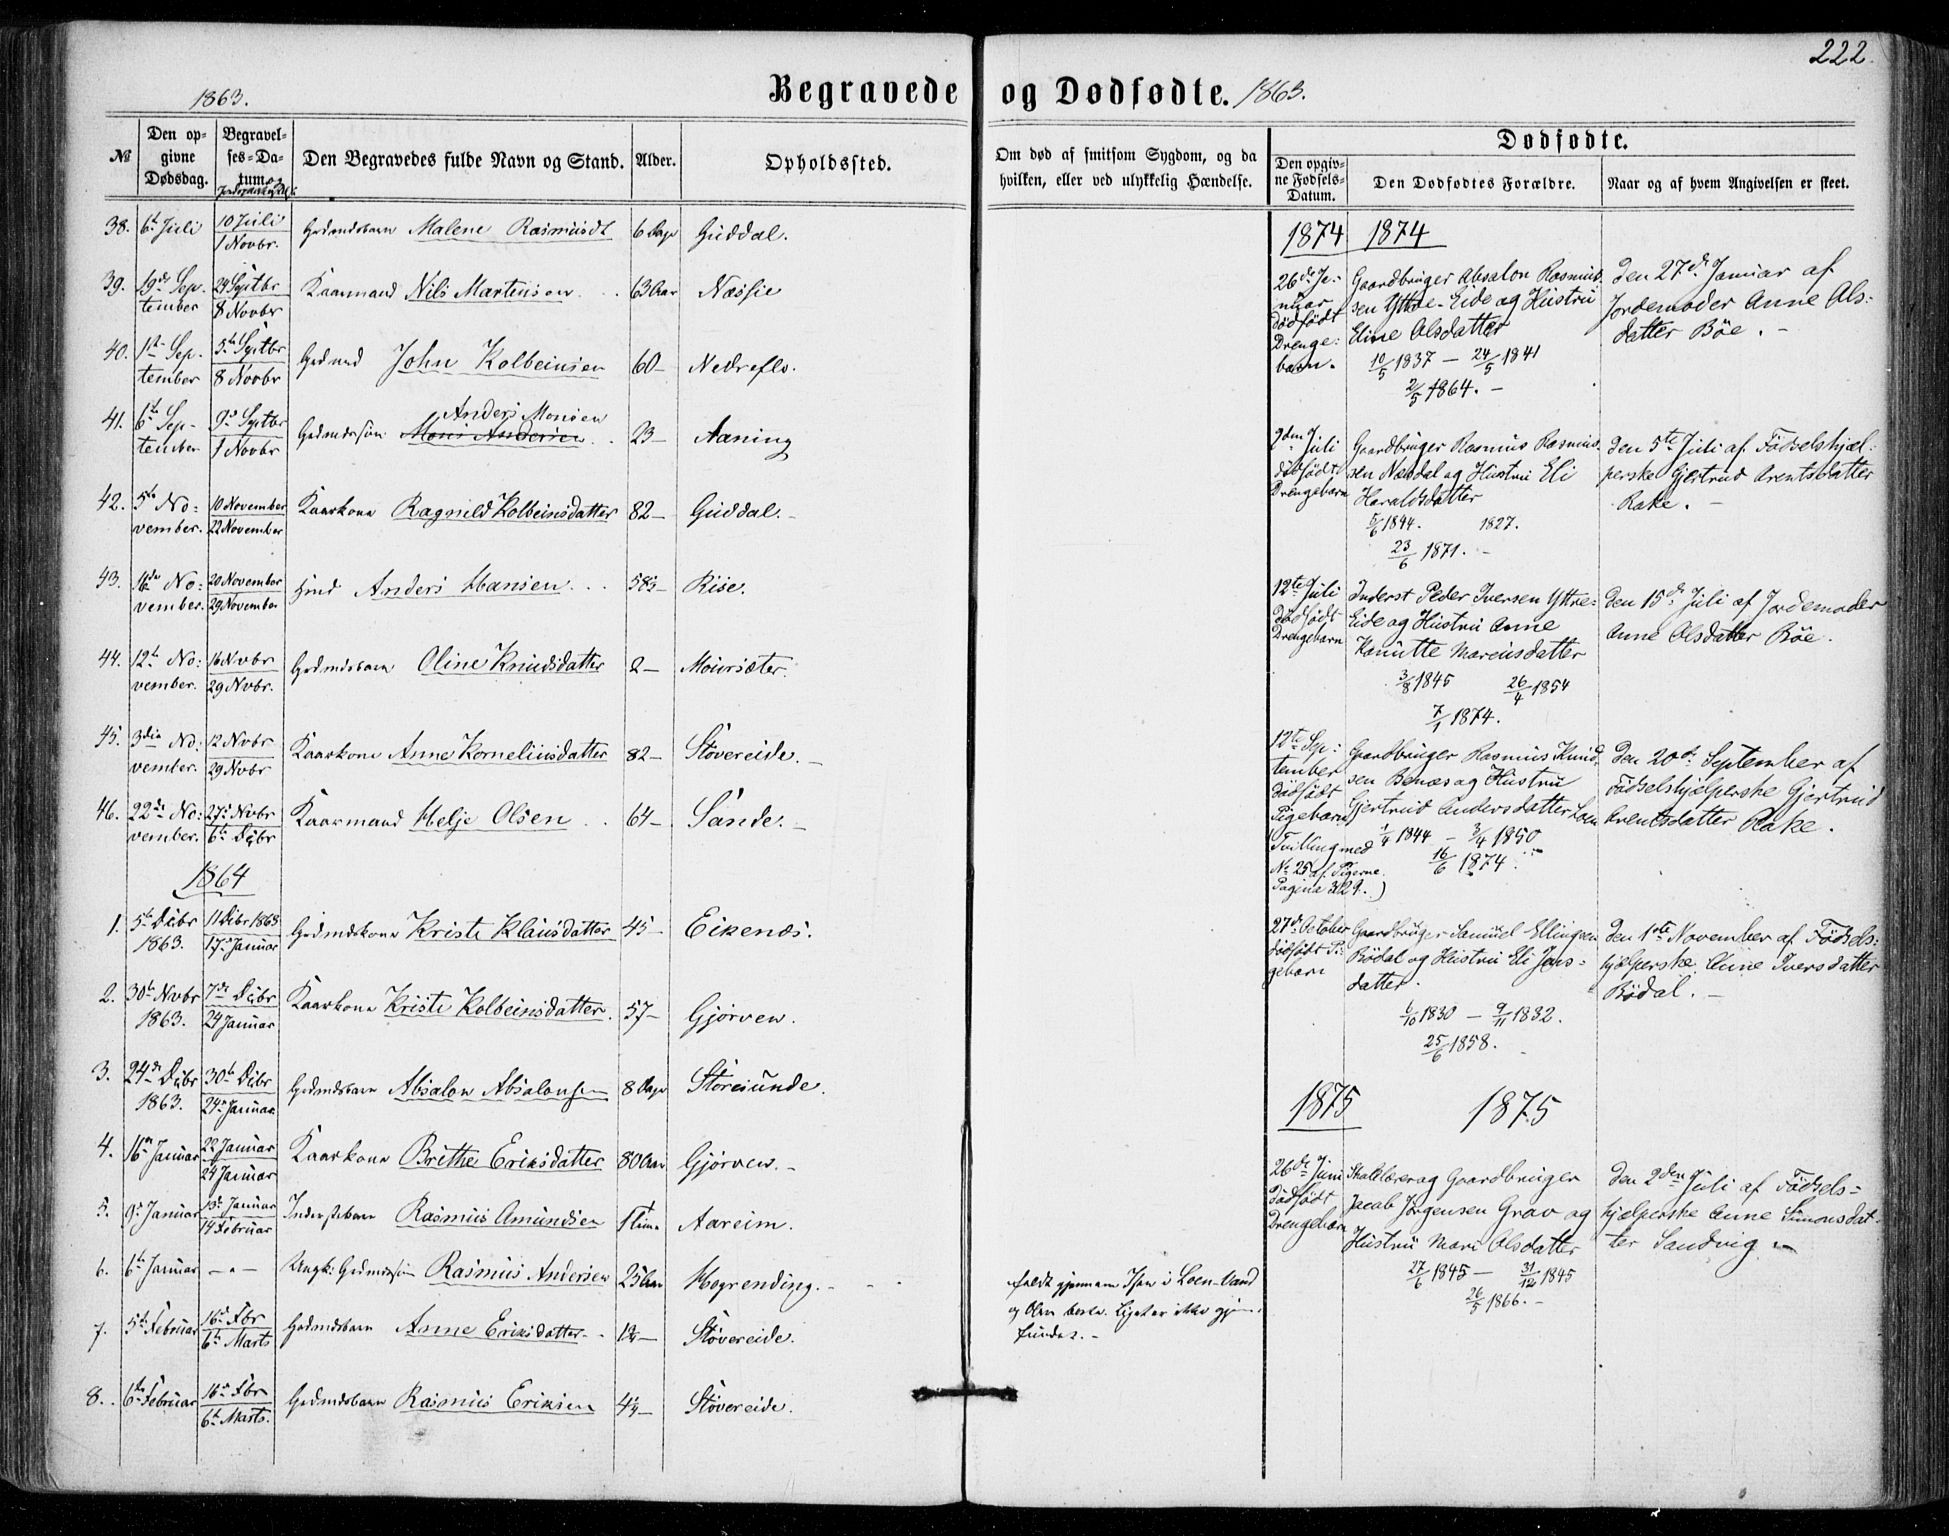 222.
1863.
Begravede og Dødfødte. 1863.
№
Den opgivne Dødsdag.
Begravelses-Datum og
Den Begravedes fulde Navn og Stand.
Alder.
Opholdssted.
Om død af smitsom Sygdom, og da hvilken, eller ved ulykkelig Hændelse.
Dødfødte.
Den opgivne Fødsels-Datum.
Den Dødfødtes Forældre.
Naar og af hvem Angivelsen er skeet.
38. 6t Juli 10 Juli 1 Novbr. Gbdmdsbarn Malene Rasmusdt 6 Dage Guddal.
39. 19de September 24 Septbr 8 Novbr Kaarmand Nils Martensen 63 Aar Næssie
40. 1ste September 5te Septbr 8 Novbr Gbdmd John Kolbeinsen 60 — Nedreflo.
41. 6te September 9de Septbr 1 Novbr Gbdmdssøn Mons Andersen Anders Monsen 23 — Aaning
42. 5te November. 10 November 22 November Kaarkone Ragnild Kolbeinsdatter 82 — Guddal. —
43. 16de November. 20 November 29 November Hmd Anders Hansen 58½ — Riise.
44. 12te November. 16 Novbr 29 Novbr. Gbdmdsbarn Oline Knudsdatter 2 — Mourisæter.
45. 3die November. 12 Novbr 29 Novbr Kaarkone Anne Korneliusdatter 82 — Støvereide. —
46. 22de November. 27de Novbr 6te Dcbr Kaarmand Helje Olsen 64 — Sande. —
1864
1. 5te Dcbr 1863. 11 Dcbr 1863 17de Januar Gbdmdskone Kristi Klausdatter 45 — Eikenæs.
2. 30te Nvbr 1863. 7de Dcbr 24 Januar Kaarkone Kristi Kolbeinsdatter. 57 — Gjørven.
3. 24de Dcbr 1863. 30te Dcbr 24de Januar Gbdmdsbarn Absalon Absalonsen 8 Dage Storesunde.
4. 16de Januar 22 Januar 24 Januar Kaarkone Brithe Eriksdatter 80 Aar Gjørven. —
5. 9de Januar 13de Januar 14 Februar Inderstebarn Rasmus Amundsen 1 Time Aareim.
6. 6te Januar — " — Ungk: Gbdmdssøn Rasmus Andersen 25 Aar Hogrending. —
faldt gjennem Isen i Loen-Vand
7. 5te Februar 16de Fbr 6te Marts Gbdmdsbarn Anne Eriksdatter 1¾ — Støvereide.
8. 6te Februar 16de Fbr 6te Marts. Gbdmdsbarn Rasmus Eriksen 4½ — Støvereide.
1874 1874
26de Januar dødfødt Drengebarn.
Gaardbruger Absalon Rasmus-
sen Yttre-Eide og Hustru
Eline Olsdatter
10/5 1837 — 24/5 1841
2/5 1864. —
Den 27de Januar af
Jordemoder Anne Ols-
datter Bøe. —
2den Juli dødfødt Drengebarn
Gaardbruger Rasmus Rasmus-
sen Næsdal og Hustru Eli
Haraldsdatter
5/6 1844. 1827.
23/6 1871. —
Den 5te Juli af Fødselshjæl-
perske Gjertrud Arentsdatter
Rake. —
12te Juli dødfødt Drengebarn
Inderst Peder Iversen Yttre-
Eide og Hustru Anne
Kanutte Mareusdatter
3/8 1845 26/4 1854
7/1 1874.
Den 15de Juli af Jordemoder
Anne Olsdatter Bøe.
12te September dødfødt Pigebarn (Tvilling med No 25 af Pigerne Pagina 329.)
Gaardbruger Rasmus Knud-
sen Benæs og Hustru
Gjertrud Andersdatter Loen
1/4 1844 — 3/4 1850
16/6 1874.
Den 20de September af
Fødselshjælperske Gjertrud
Arentsdatter Rake.
27de October dødfødt Pigebarn
Gaardbruger Samuel Ellingsen
Bødal og Hustru Eli Jens-
datter.
6/10 1830 — 9/11 1832.
25/6 1858.
Den 1ste November af Fødsels-
hjælperske Anne Iversdatter
Bødal. —
1875 1875
26de Juni dødfødt Drengebarn
Skolelærer og Gaardbruger
Jacob Jørgensen Grov og
Hustru Mari Olsdatter
27/6 1845 — 31/12 1845
26/5 1866. —
Den 2den Juli af Fødsels-
hjælperske Anne Simonsdat-
ter Sandvig. —